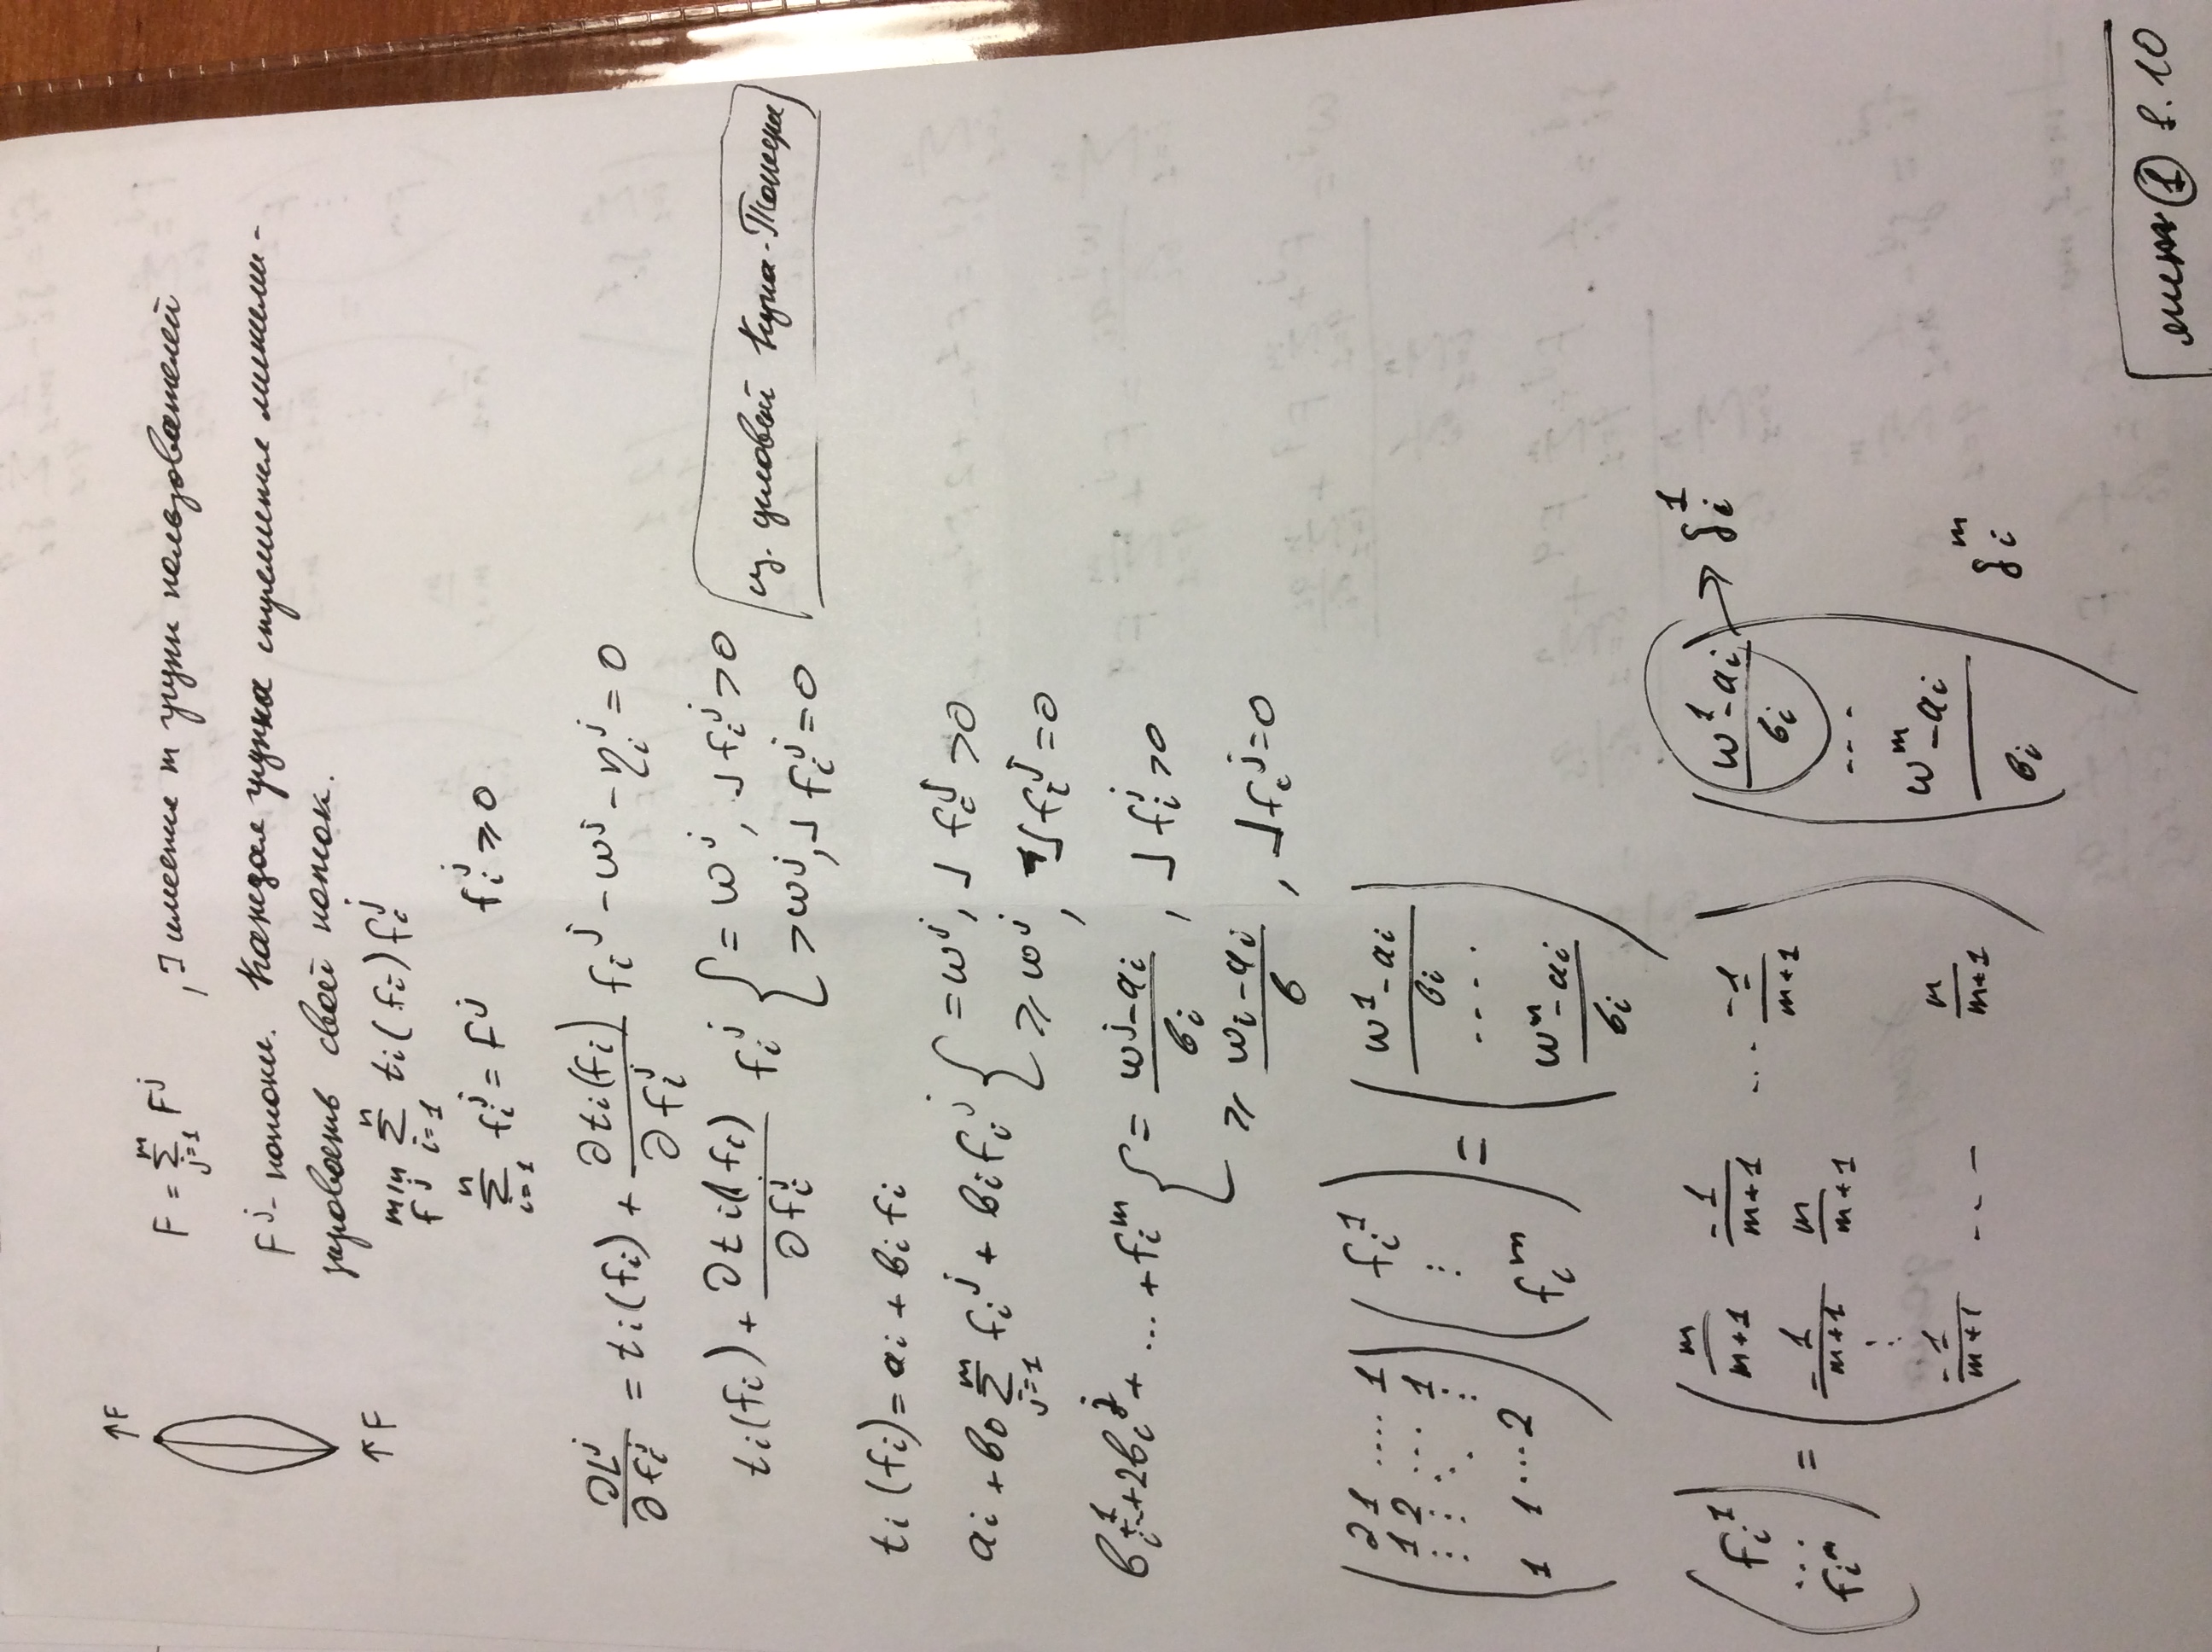 ↑F
F = ∑_{j=1}^{m} F^j , ] имеется m групп пользователей
F^j - потоки. Каждая группа стремится миними-
зировать свой поток.
↑F
min_{f^j} ∑_{i=1}^{n} t_i(f_i) f_i^j
∑_{i=1}^{n} f_i^j = F^j f_i^j ⩾ 0
∂L^j/∂f_i^j = t_i(f_i) + ∂t_i(f_i)/∂f_i^j f_i^j - ω^j - η_i^j = 0
t_i(f_i) + ∂t_i(f_i)/∂f_i^j f_i^j { = ω^j, ] f_i^j > 0
> ω^j, ] f_i^j = 0
из условий Куна-Таккера
t_i(f_i) = a_i + b_i f_i
a_i + b_0 ∑_{j=1}^{m} f_i^j + b_i f_i^j { = ω^j, ] f_i^j > 0
⩾ ω^j, ] f_i^j = 0
b_i^1 + 2b_i^j + ... + f_i^m { = (ω^j - a_i)/b_i , ] f_i^j > 0
⩾ (ω_i - a_i)/b , ] f_i^j = 0
( 2 1 .... 1 ) ( f_i^1 ) = ( (ω^1 - a_i)/b_i )
1 2 ... 1
⋮ ⋮ ⋱ ⋮ ⋮ ....
1 1 ... 2 f_i^m (ω^m - a_i)/b_i
( f_i^1 ) = ( m/(m+1) -1/(m+1) ... -1/(m+1) ) ( (ω^1 - a_i)/b_i ) → δ_i^1
... -1/(m+1) m/(m+1) ...
f_i^m ⋮
-1/(m+1) ... m/(m+1) (ω^m - a_i)/b_i δ_i^m
лист ① 8.10